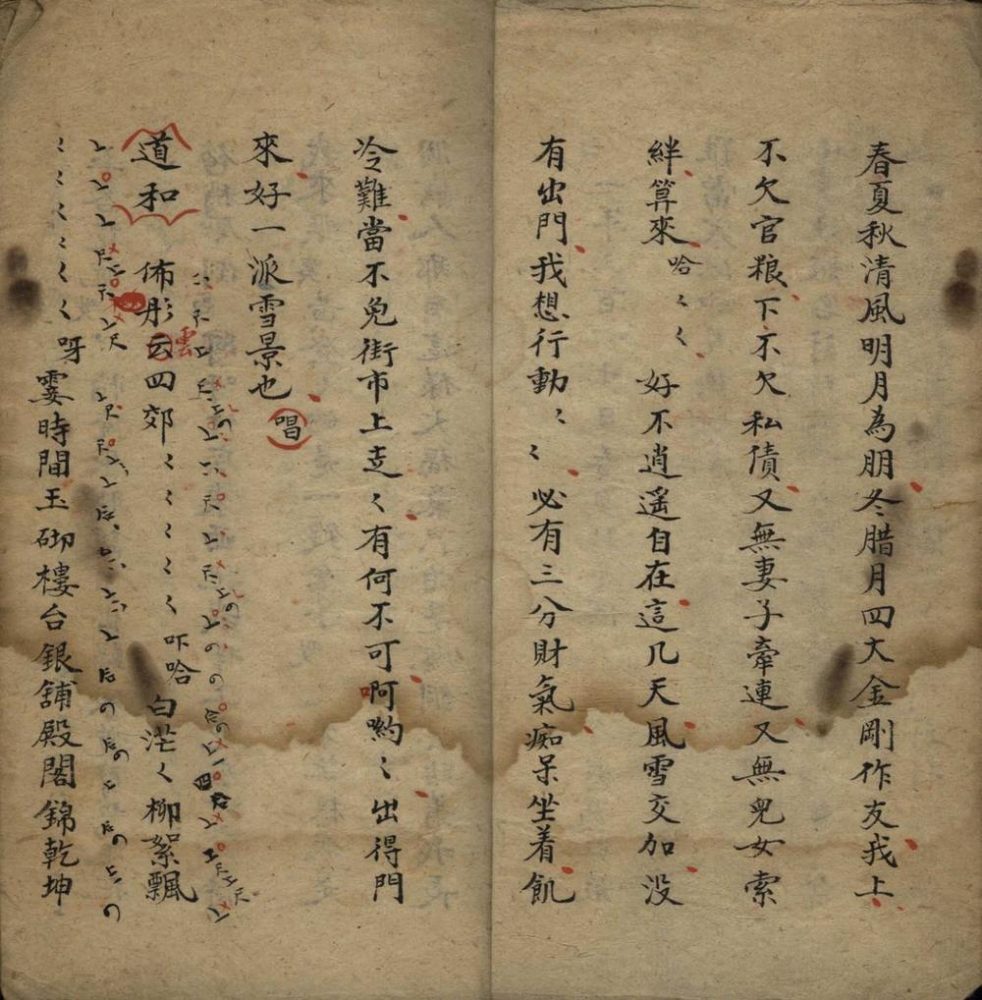 春夏秋清風明月為朋冬腊月四大金剛作友我上
不欠官粮下不欠私债又無妻子牽連又無兒女索
絆算來哈〻〻好不逍遥自在這几天風雪交加没
有出門我想行動〻〻必有三分財氣痴呆坐着飢
冷難當不免街市上走〻有何不可啊喲〻出得門
來好一派雪景也唱
道和 佈彤云雲四郊〻〻〻〻〻吓哈白茫〻柳絮飄
〻〻〻〻〻呀霎時間玉砌樓台銀舖殿閣錦乾坤